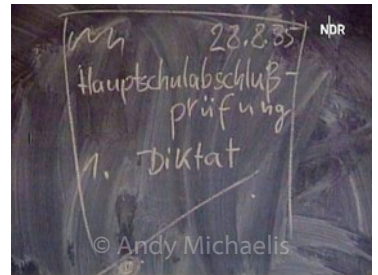 28.8.85
NDR
Hauptschulabschluß-
prüfung
1. Diktat
© Andy Michaelis